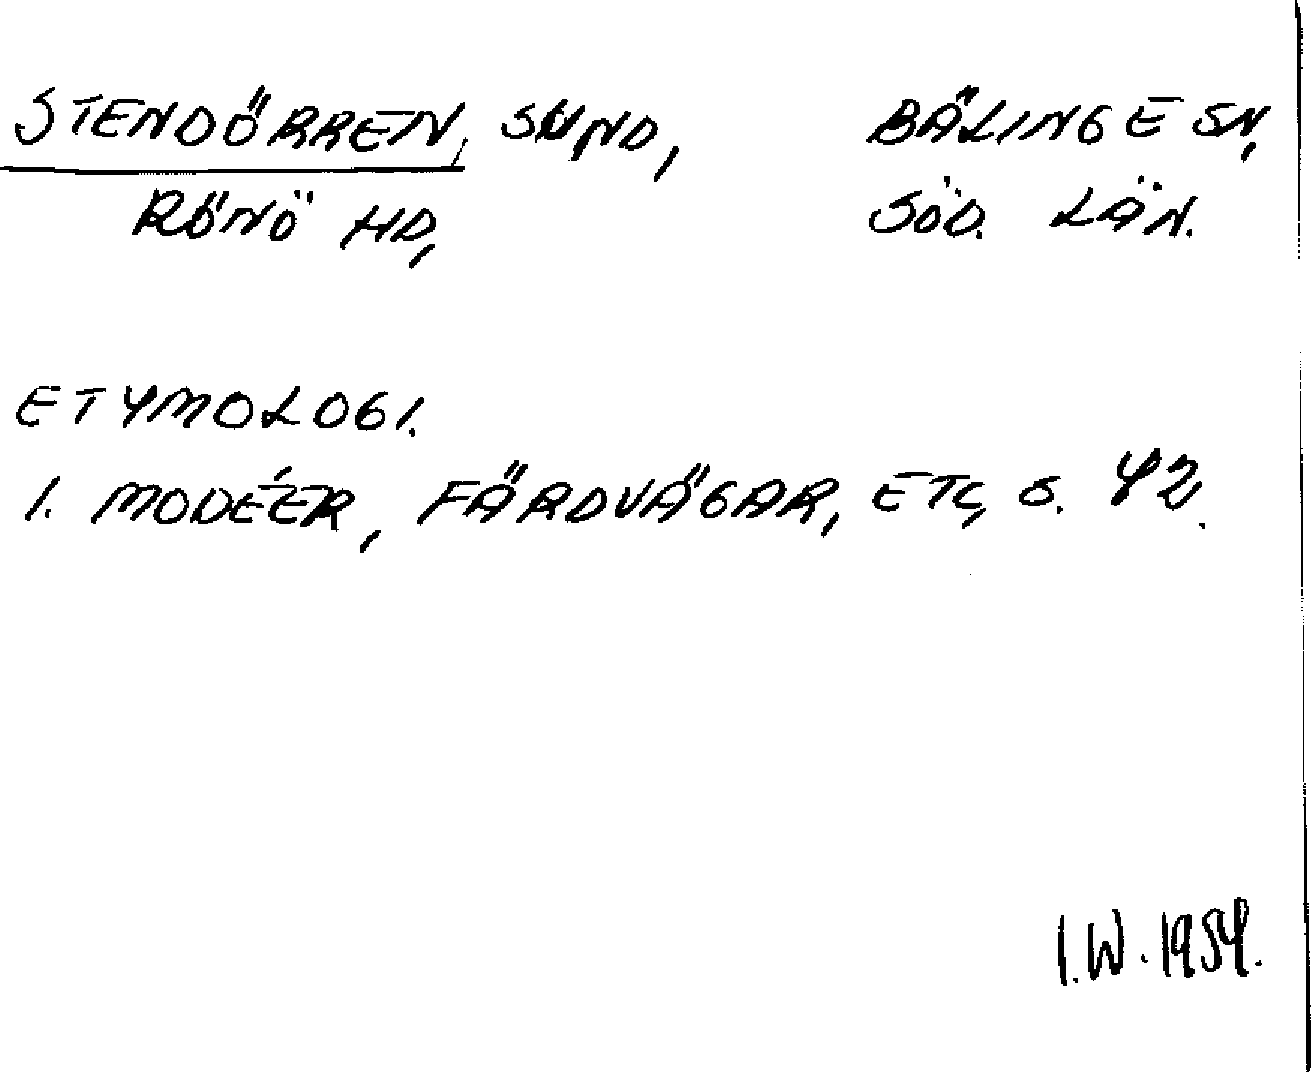 STENDÖRREN, SUND, BÄLINGE SN,
RÖNÖ HD, SÖD. LÄN.
ETYMOLOGI.
1. MODÉER, FÄRDVÄGAR, ETC, S. 42.
I.W. 1954.